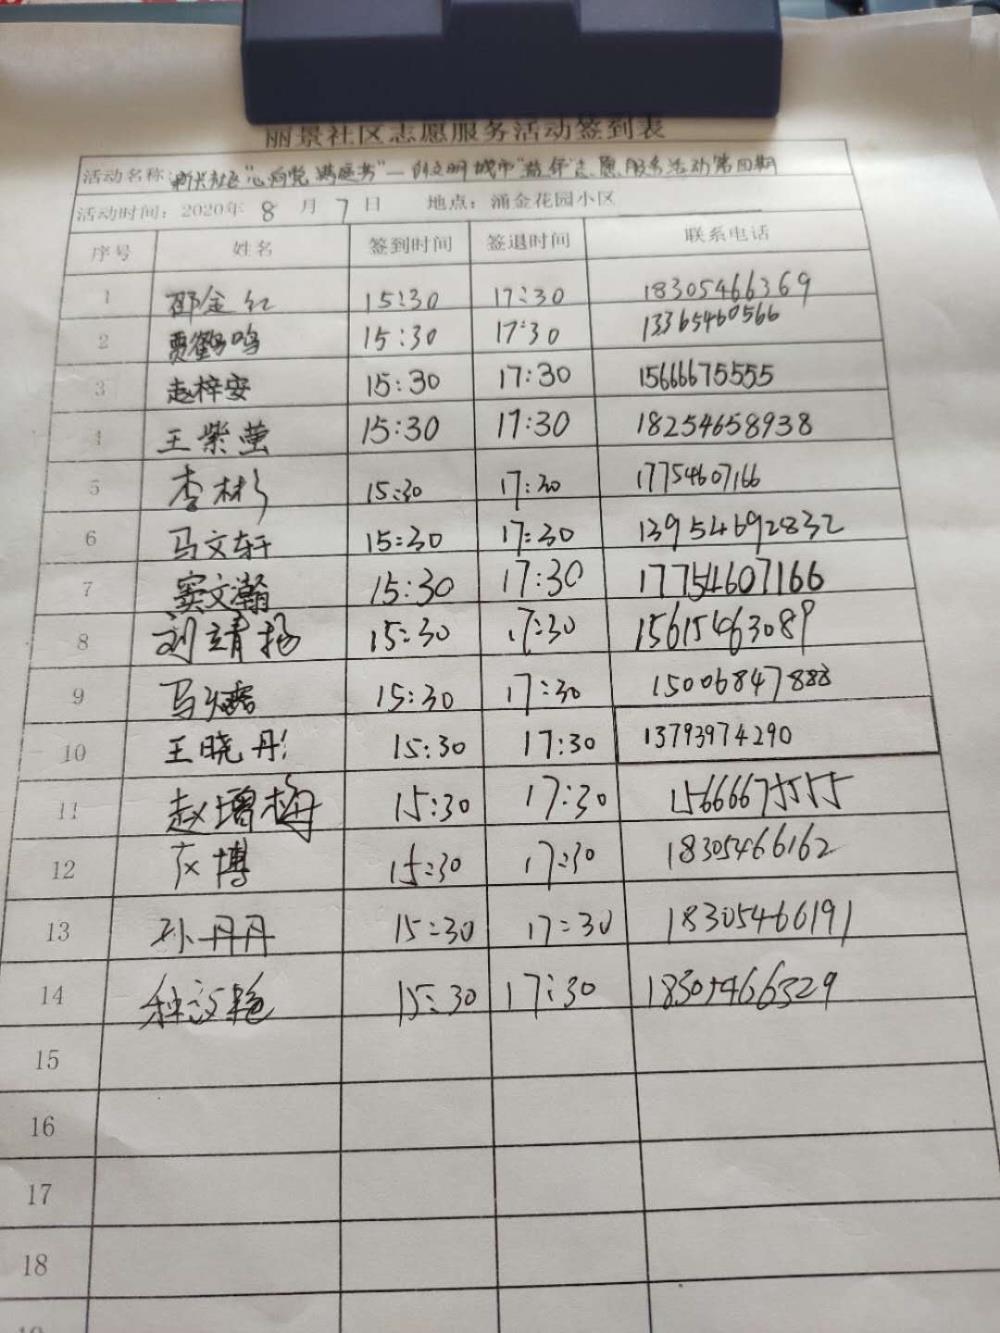 丽景社区志愿服务活动签到表
活动名称: 社区"心向党 满庭芳"一创文明城市"志愿服务活动第四期
活动时间: 2020年 8 月 7 日 地点: 涌金花园小区
序号 姓名 签到时间 签退时间 联系电话
1 邵金红 15:30 17:30 18305466369
2 贾鹤鸣 15:30 17:30 13365460566
3 赵梓安 15:30 17:30 15666675555
4 王紫莹 15:30 17:30 18254658938
5 李彬 15:30 17:30 17754607166
6 马文轩 15:30 17:30 13954692832
7 窦文瀚 15:30 17:30 17754607166
8 刘靖扬 15:30 17:30 15615463089
9 马 15:30 17:30 15006847888
10 王晓彤 15:30 17:30 13793974290
11 赵增梅 15:30 17:30 15666675555
12 博 15:30 17:30 18305466162
13 孙丹丹 15:30 17:30 18305466191
14 艳 15:30 17:30 18305466329
15
16
17
18
19